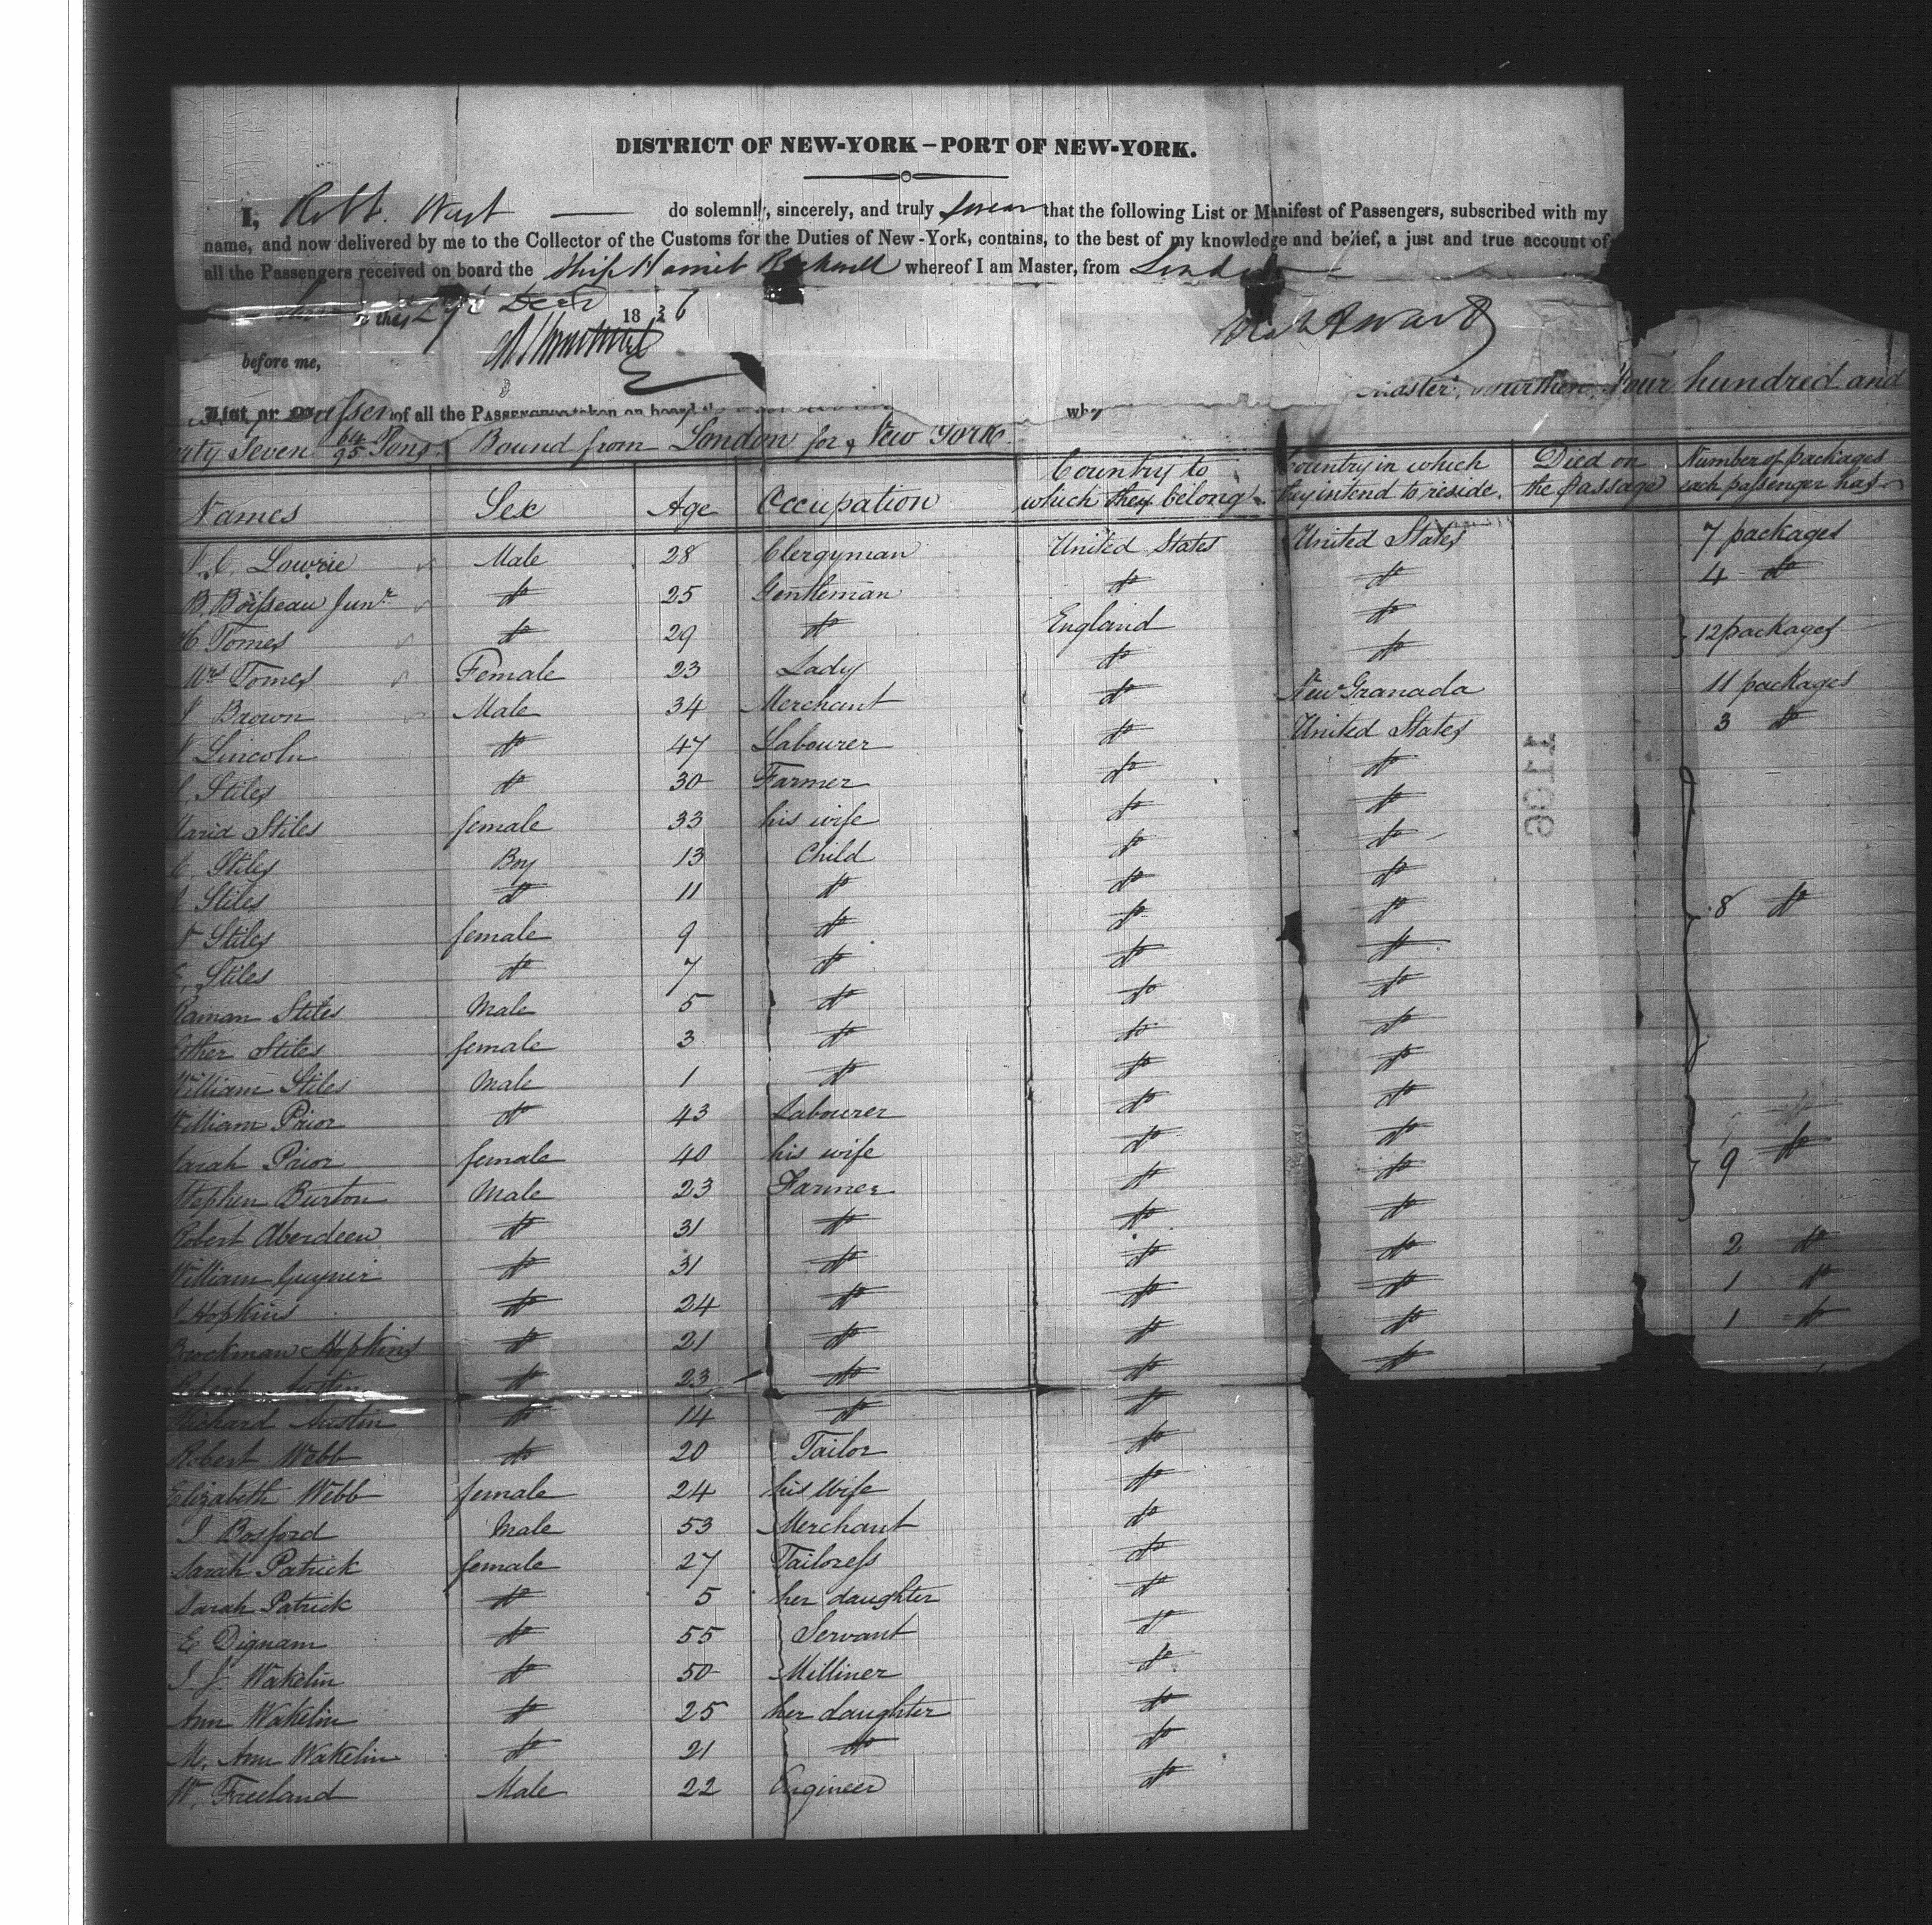 DISTRICT OF NEW-YORK – PORT OF NEW-YORK.
I, Robt. Wast do solemnly, sincerely, and truly swear that the following List or Manifest of Passengers, subscribed with my
name, and now delivered by me to the Collector of the Customs for the Duties of New-York, contains, to the best of my knowledge and belief, a just and true account of
all the Passengers received on board the Ship whereof I am Master, from London
Decr 1836
before me,
List or of all the Passengers taken on board the
Master, burthen, Four hundred and
Seven 64/95 Tons. Bound from London for New York
Names Sex Age Occupation Country to which they belong Country in which they intend to reside. Died on the Passage Number of packages each passenger has
Lowrie Male 28 Clergyman United States United States 7 packages
B. Boisseau Junr. do 25 Gentleman do do 4 do
Tomes do 29 do England do } 12 packages
Mrs Tomes Female 23 Lady do do
Brown Male 34 Merchant do New Granada 11 packages
Lincoln do 47 Labourer do United States 3 do
Stiles do 30 Farmer do do
Maria Stiles female 33 his wife do do
Stiles Boy 13 Child do do
Stiles do 11 do do do
Stiles female 9 do do do 8 do
E. Stiles do 7 do do do
Stiles Male 5 do do do
Esther Stiles female 3 do do do
William Stiles Male 1 do do do
William Prior do 43 Labourer do do
Sarah Prior female 40 his wife do do 9 do
Stephen Burton Male 23 Farmer do do
Robert Aberdeen do 31 do do do 2 do
William do 31 do do do 1 do
Hopkins do 24 do do do 1 do
Brockman Hopkins do 21 do do do
do 23 do do do
Richard Austin do 14 do do
Robert Webb do 20 Tailor do
Elizabeth Webb female 24 his wife do
Bosford Male 53 Merchant do
Sarah Patrick female 27 Tailoress do
Sarah Patrick do 5 her daughter do
E Dignam do 55 Servant do
Wakelin do 50 Milliner do
Ann Wakelin do 25 her daughter do
M. Ann Wakelin do 21 do do
W. Freeland Male 22 Engineer do